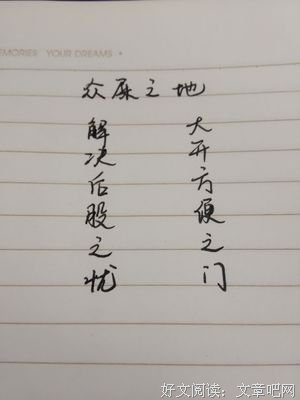 EMORIES YOUR DREAMS
众屎之地
大开方便之门
解决后股之忧
好文阅读：文章吧网